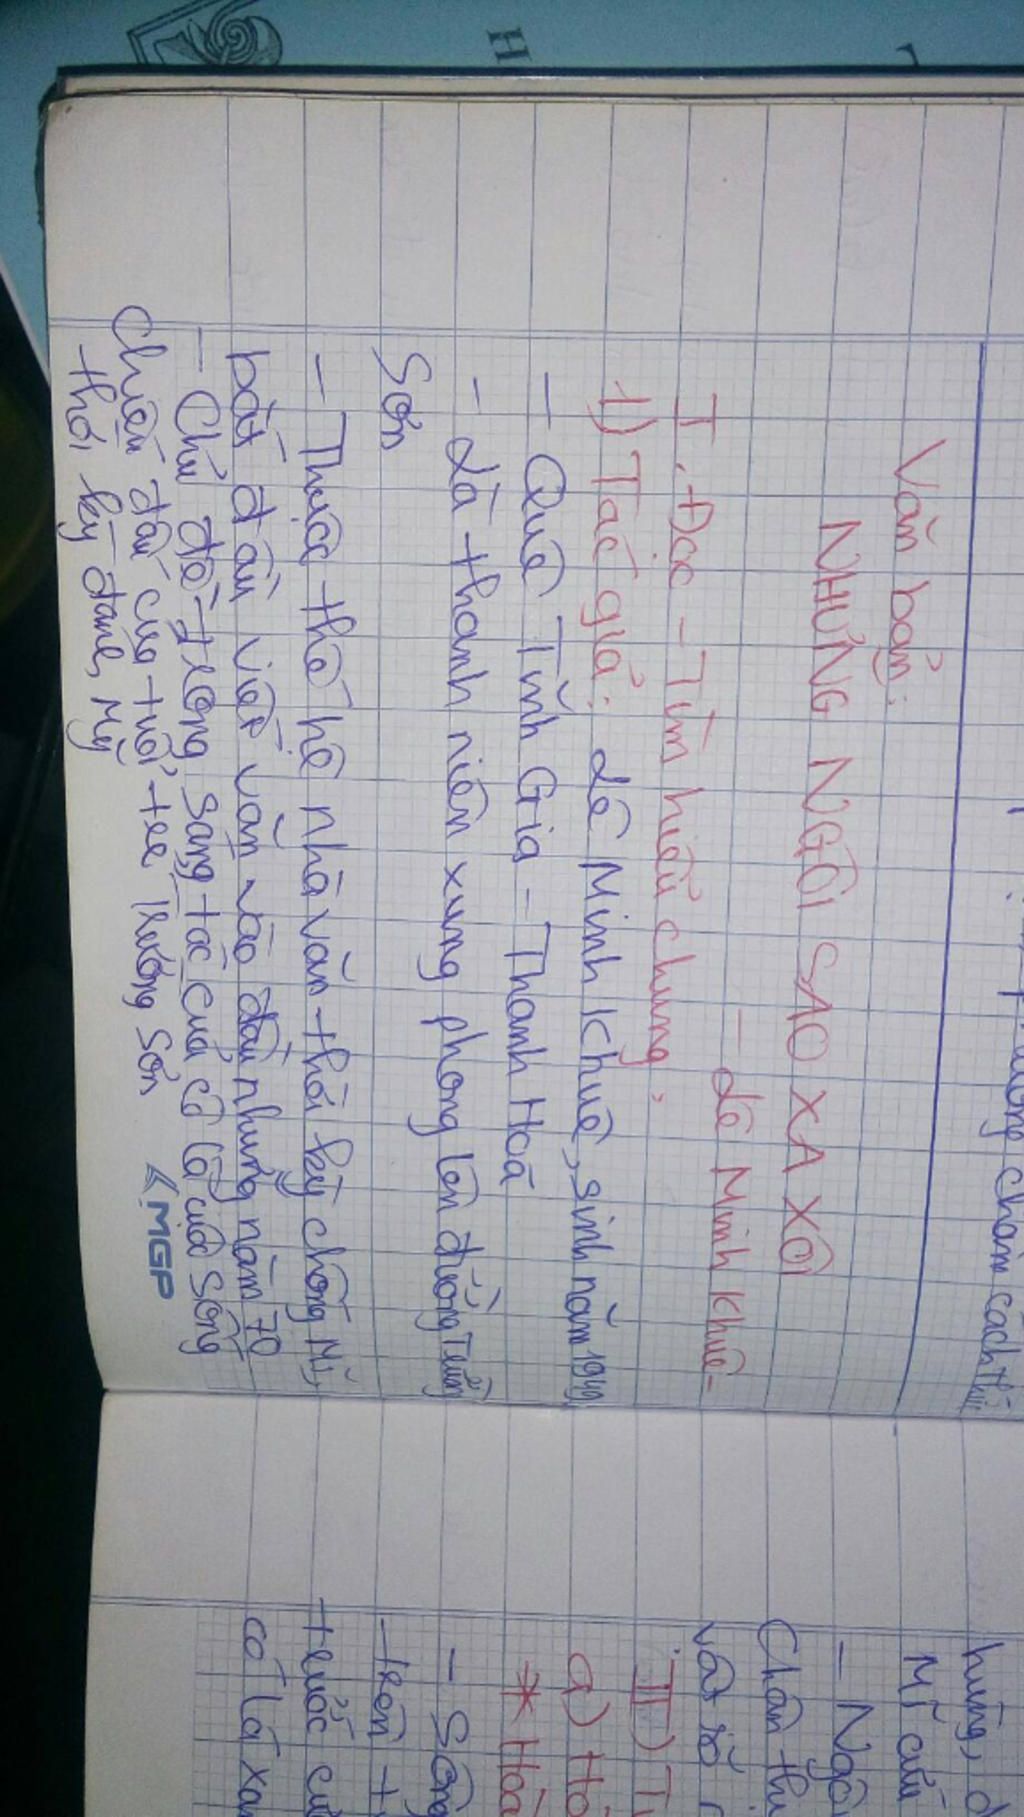 chậm cách
Văn bản:
NHỮNG NGÔI SAO XA XÔI
- Lê Minh Khuê-
I. Đọc - Tìm hiểu chung:
1) Tác giả: Lê Minh Khuê, sinh năm 1949,
- Quê Tĩnh Gia - Thanh Hoá
- Là thanh niên xung phong lên đường Trường
Sơn
- Thuộc thế hệ nhà văn thời kỳ chống Mĩ,
bắt đầu viết văn vào đầu những năm 70
- Chủ đề trong sáng tác của cô là cuộc sống
chiến đấu của tuổi trẻ Trường Sơn
thời kỳ đánh Mỹ
MGP
H
hùng, d
Mĩ cứu
- Ngôi
Chân th
vật
II) T
a) Ho
* Hoà
- Sống
trên t
trước c
có lá xa